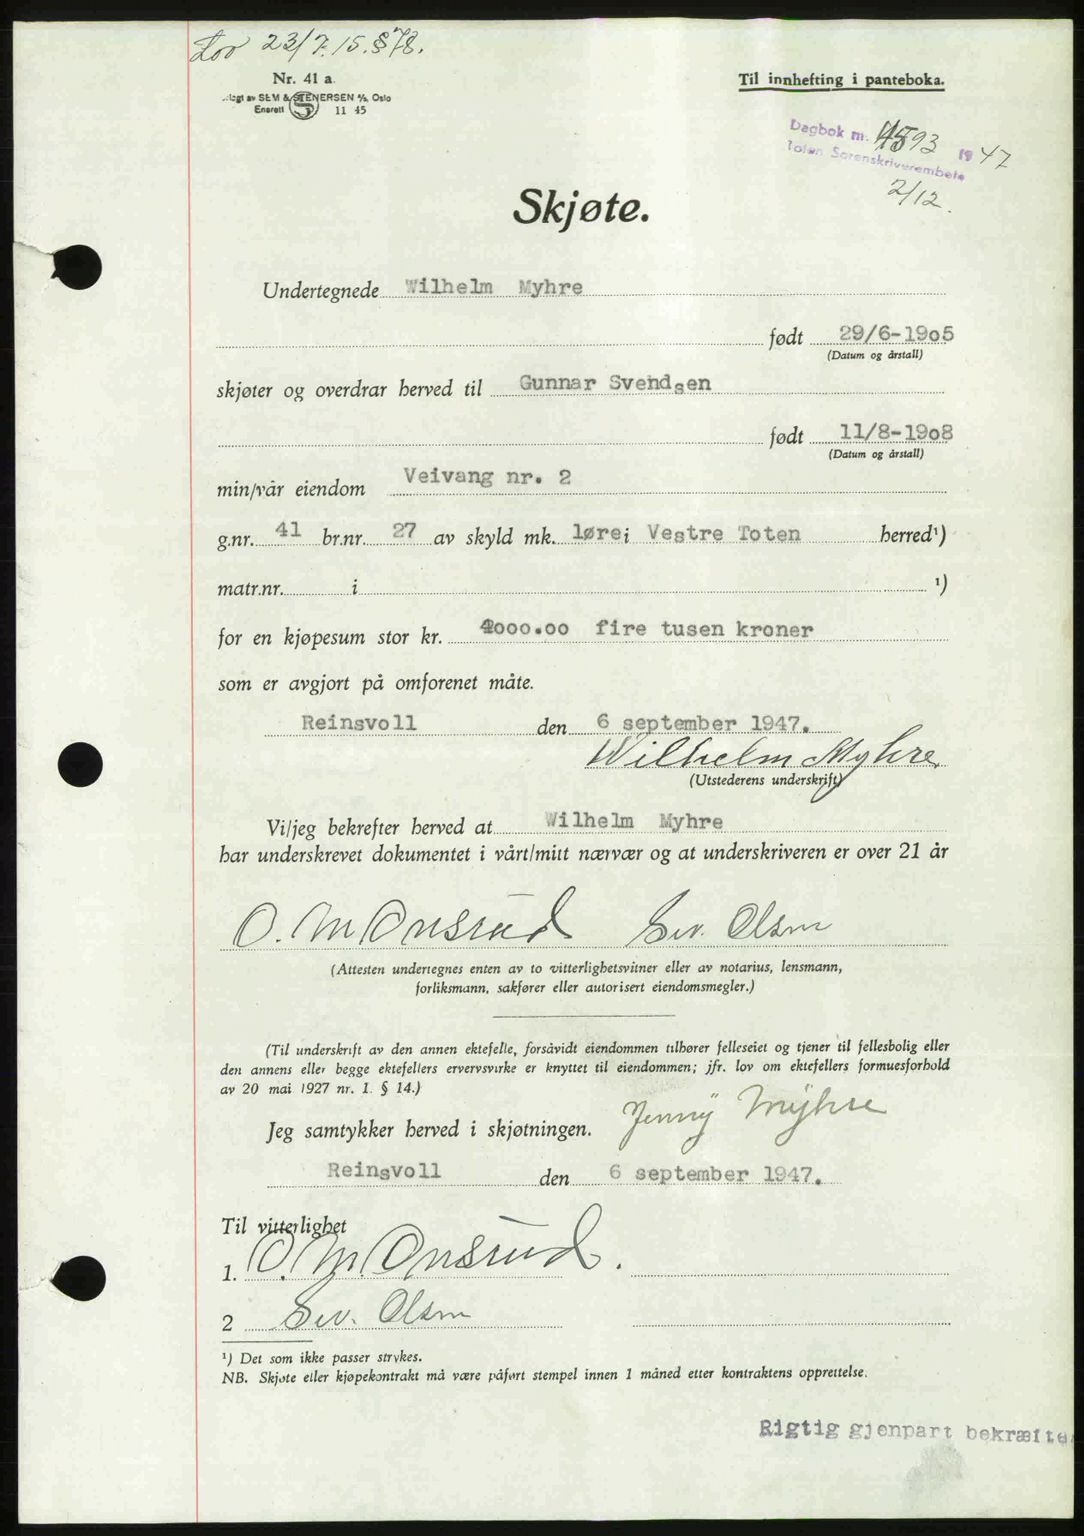 Lov 23/7.15.§78.
Nr. 41 a.
Til innhefting i panteboka.
SEM & STENERSEN A/S, Oslo
Enerett S 11 45
Dagbok nr. 4593 1947
Toten Sorenskriverembete
2/12.
Skjøte.
Undertegnede Wilhelm Myhre
født 29/6-1905
(Datum og årstall)
skjøter og overdrar herved til Gunnar Svendsen
født 11/8-1908
(Datum og årstall)
min/vår eiendom Veivang nr. 2
g.nr. 41 br.nr. 27 av skyld mk. 1øre i Vestre Toten herred¹)
matr.nr. i ¹)
for en kjøpesum stor kr. 4000.00 fire tusen kroner
som er avgjort på omforenet måte.
Reinsvoll den 6 september 1947.
Wilhelm Myhre
(Utstederens underskrift)
Vi/jeg bekrefter herved at Wilhelm Myhre
har underskrevet dokumentet i vårt/mitt nærvær og at underskriveren er over 21 år
O. M. Onsrud Sev. Olsen
(Attesten undertegnes enten av to vitterlighetsvitner eller av notarius, lensmann,
forliksmann, sakfører eller autorisert eiendomsmegler.)
(Til underskrift av den annen ektefelle, forsåvidt eiendommen tilhører felleseiet og tjener til fellesbolig eller
den annens eller begge ektefellers ervervsvirke er knyttet til eiendommen; jfr. lov om ektefellers formuesforhold
av 20 mai 1927 nr. 1. § 14.)
Jeg samtykker herved i skjøtningen. Jenny Myhre
Reinsvoll den 6 september 1947.
Til vitterlighet
1. O. M. Onsrud.
2 Sev. Olsen
¹) Det som ikke passer strykes.
NB. Skjøte eller kjøpekontrakt må være påført stempel innen 1 måned etter kontraktens opprettelse.
Rigtig gjenpart bekræftes